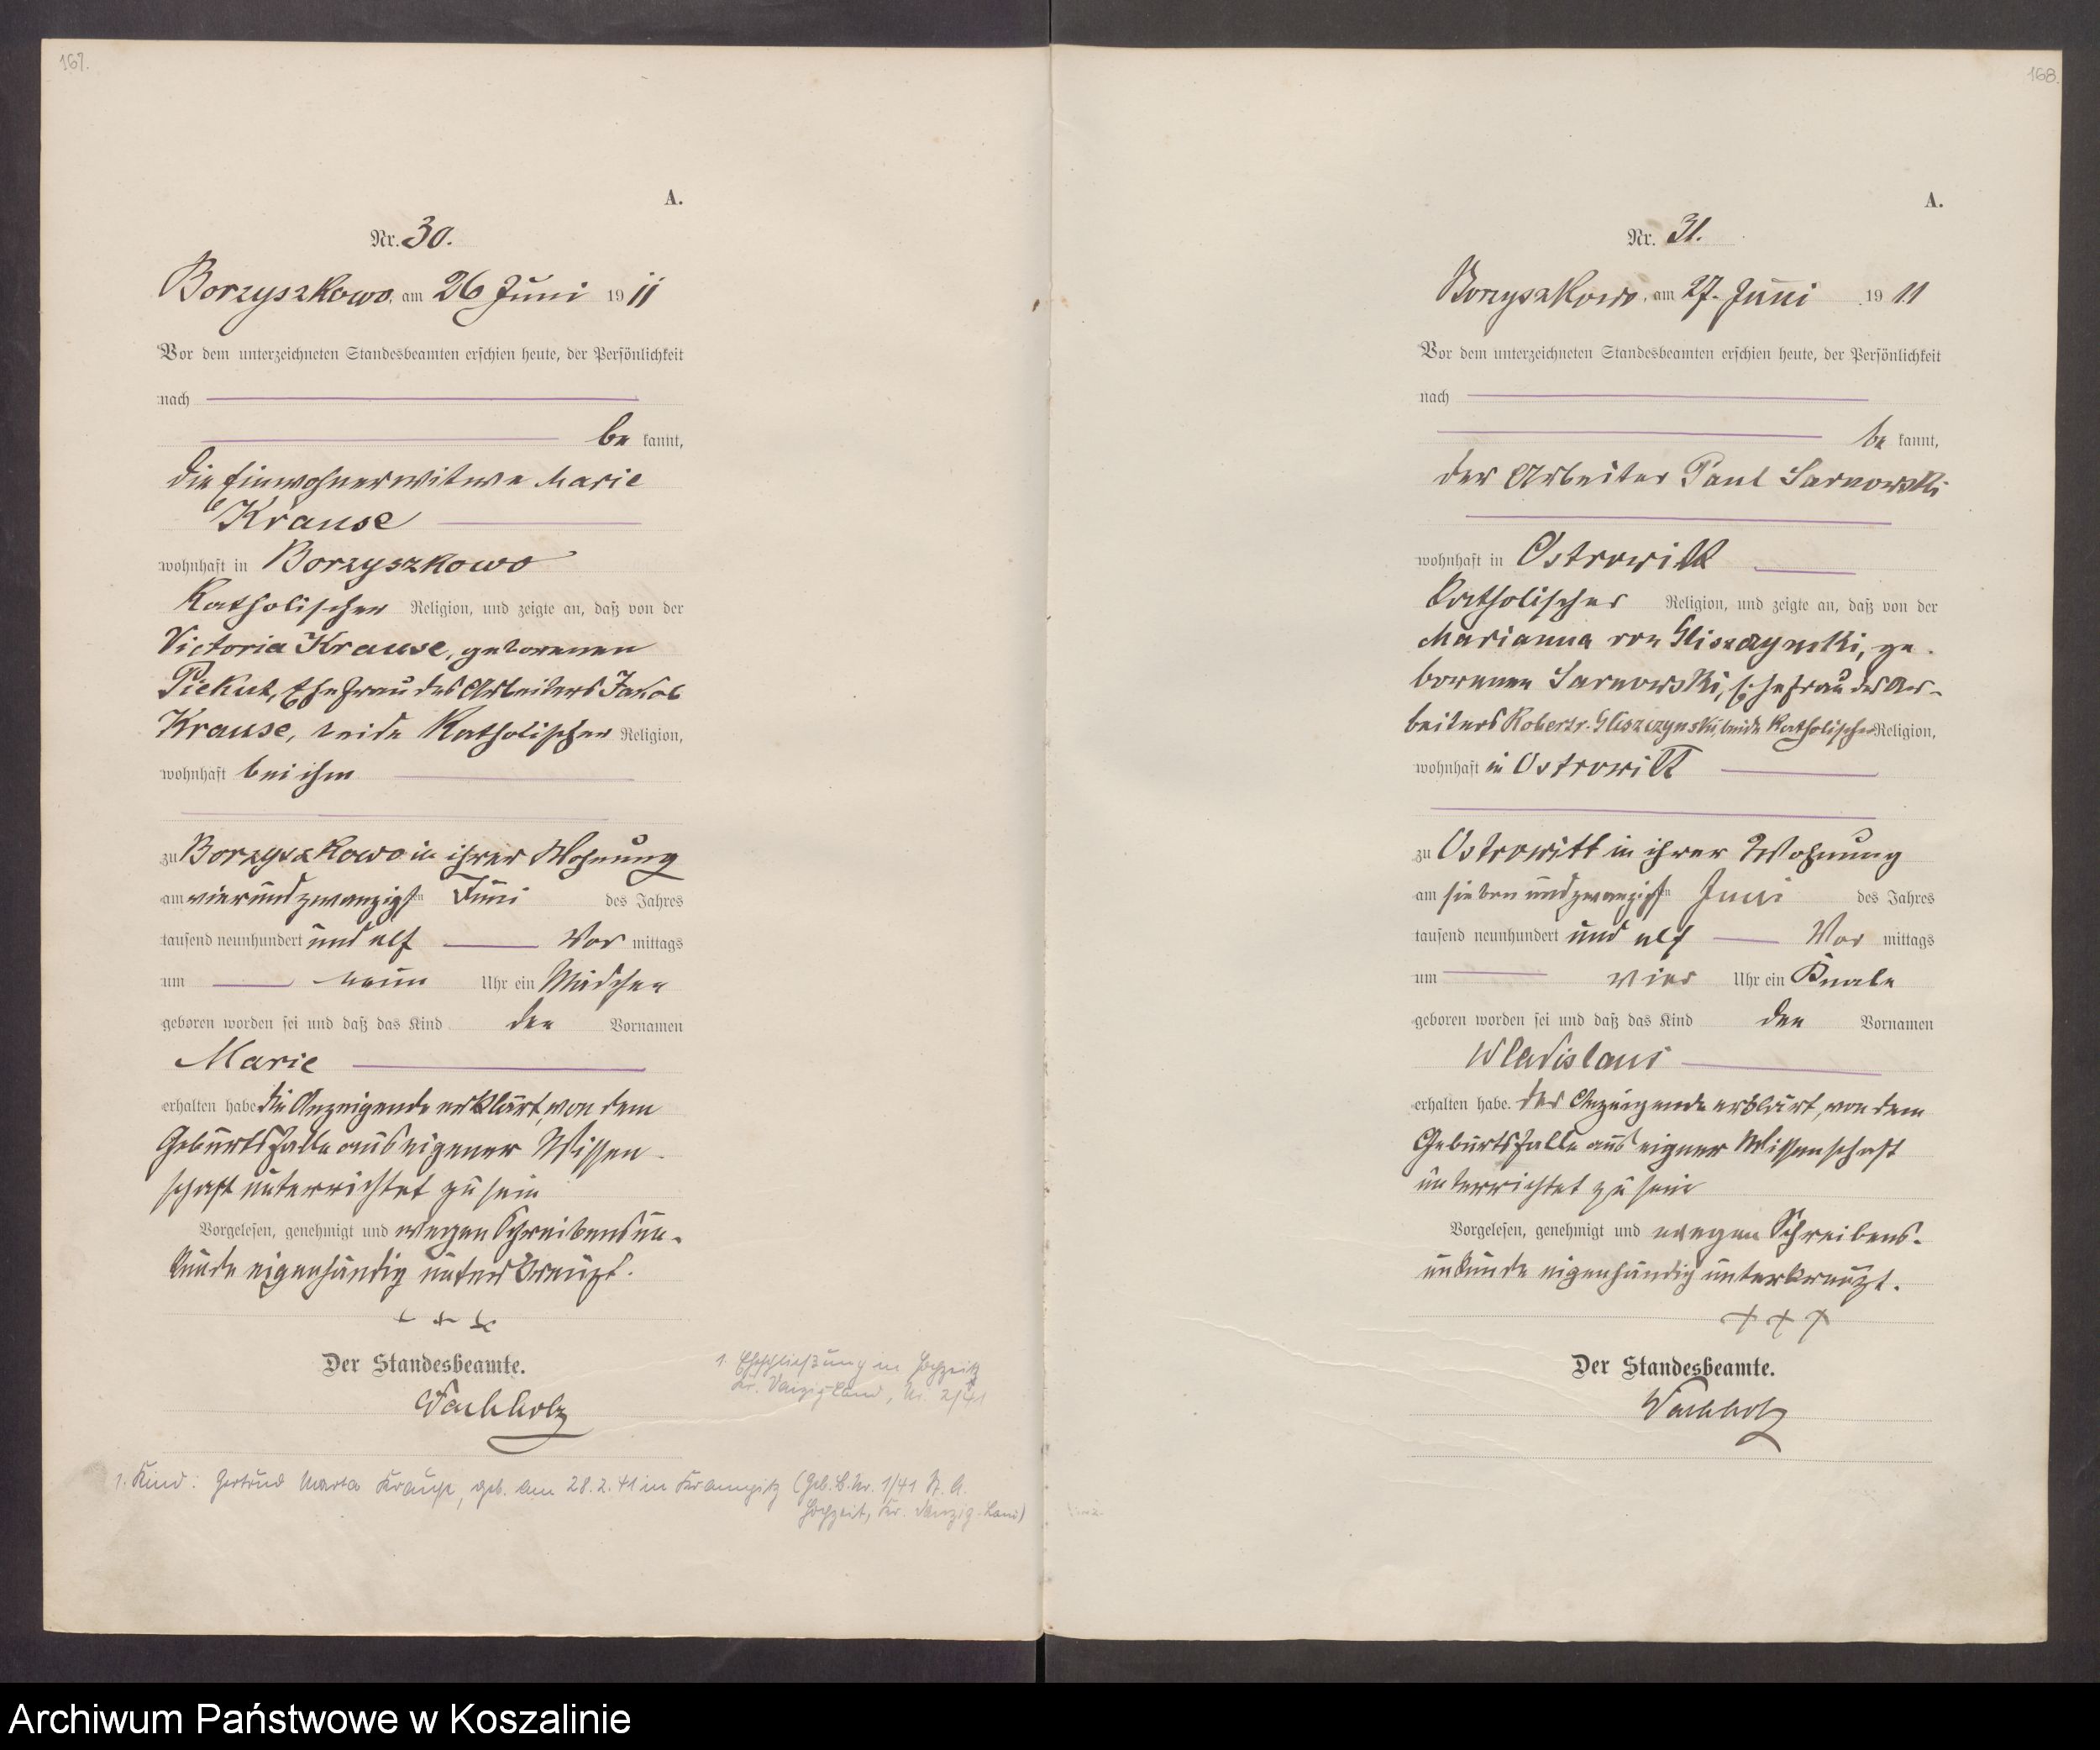 167.
A.
Nr. 30.
Borzyszkowo am 26 Juni 1911
Vor dem unterzeichneten Standesbeamten erschien heute, der Persönlichkeit
nach
be kannt,
die Einwohnerwitwe Marie
Krause
wohnhaft in Borzyszkowo
Katholischer Religion, und zeigte an, daß von der
Victoria Krause, geborenen
Piekut, Ehefrau des Arbeiters Jakob
Krause, beide Katholischer Religion,
wohnhaft bei ihm
zu Borzyszkowo in ihrer Wohnung
am vierundzwanzigsten Juni des Jahres
tausend neunhundert und elf Vor mittags
um neun Uhr ein Mädchen
geboren worden sei und daß das Kind den Vornamen
Marie
erhalten habe die Anzeigende erklärt, von dem
Geburtsfalle aus eigener Wissen-
schaft unterrichtet zu sein
Vorgelesen, genehmigt und wegen Schreibensun-
kunde eigenhändig unterkreuzt.
+ + +
Der Standesbeamte.
Wachholz
1. Eheschließung in Hochzeit
Kr. Danzig-Land, Nr. 2/41
1. Kind: Gertrud Marta Krause, geb. am 28.2.41 in Krampitz (Geb. B. Nr. 1/41 St. A.
Hochzeit, Kr. Danzig-Land)
168.
A.
Nr. 31.
Borzyszkowo, am 27. Juni 1911
Vor dem unterzeichneten Standesbeamten erschien heute, der Persönlichkeit
nach
be kannt,
der Arbeiter Paul Sarnowski
wohnhaft in Ostrowitt
Katholischer Religion, und zeigte an, daß von der
Marianna von Gliszczynski, ge-
borenen Sarnowski, Ehefrau des Ar-
beiters Robert v. Gliszczynski, beide Katholischer Religion,
wohnhaft in Ostrowitt
zu Ostrowitt in ihrer Wohnung
am siebenundzwanzigsten Juni des Jahres
tausend neunhundert und elf Vor mittags
um vier Uhr ein Knabe
geboren worden sei und daß das Kind den Vornamen
Wladislaus
erhalten habe. der Anzeigende erklärt, von dem
Geburtsfalle aus eigner Wissenschaft
unterrichtet zu sein
Vorgelesen, genehmigt und wegen Schreibens-
unkunde eigenhändig unterkreuzt.
+ + +
Der Standesbeamte.
Wachholz
Archiwum Państwowe w Koszalinie